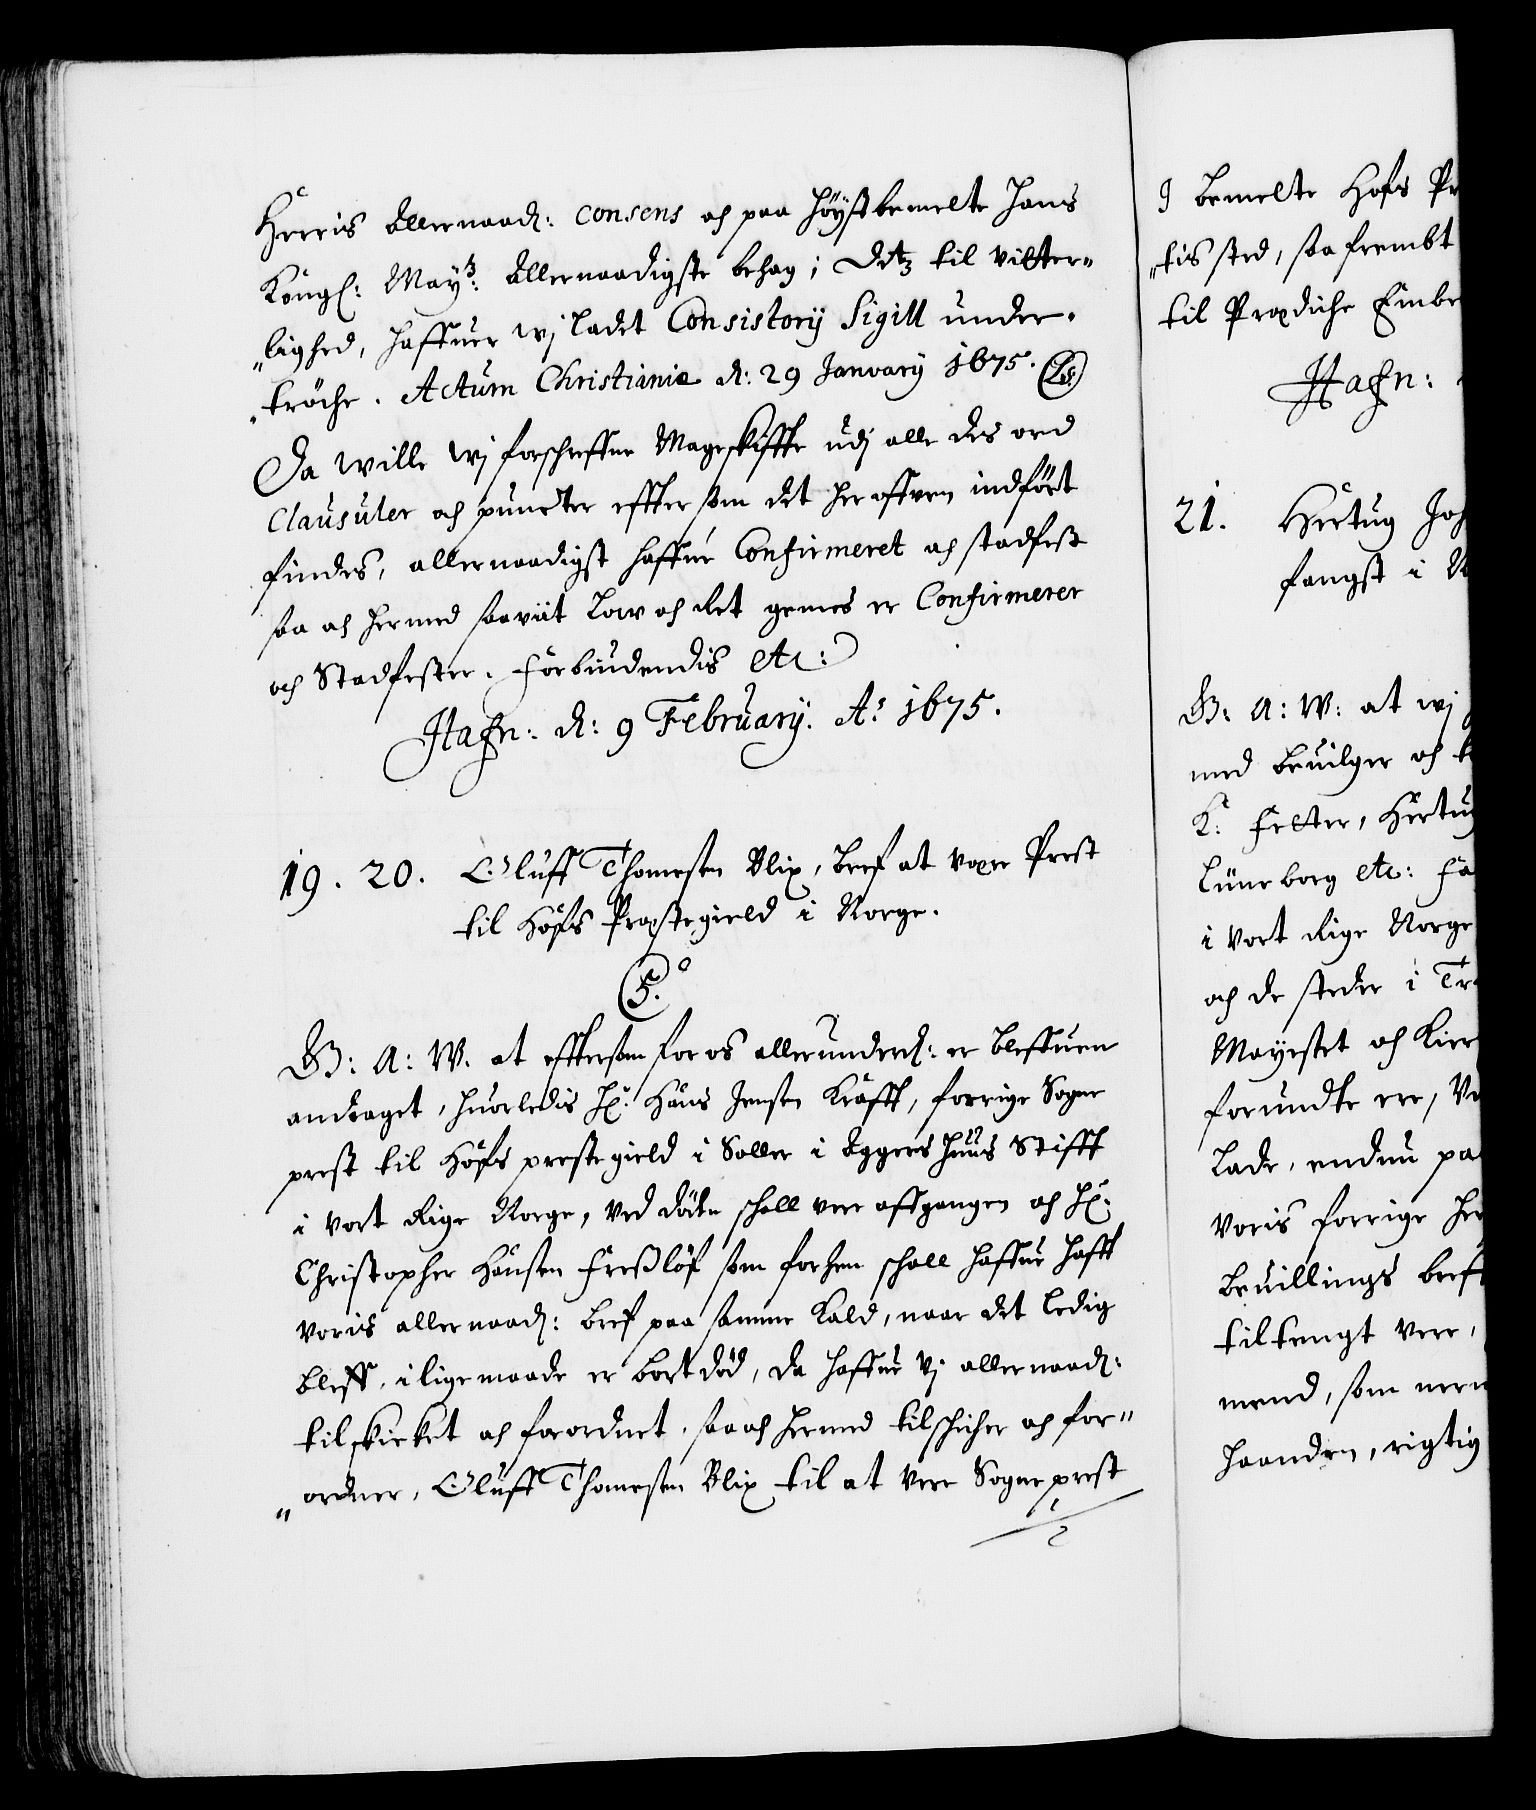 Herris allernaad: consens och paa höystbemelte Hans
Kongl: May:ts allernaadigste behag; Dets til vitter„
„lighed, haffuer wj ladet Consistorij Sigill under„
„tröche. Actum Christianiæ d: 29 January 1675. (LS)
Da wille wj forschreffne Mageskiffte udj alle des ord
Clausuler och puncter effter som det her offven indfört
findes, allernaadigst haffue Confirmeret och stadfest
saa och hermed saaviit Low och Ret gemes er Confirmerer
och Stadfester. Forbiudendis etc:
Hafn: d: 9 February. Ao 1675.
19. 20. Oluff Thomesen Blix, bref at være Prest
til Höfs Præstegield i Norge.
(5.)
G: A: W. at efftersom for os allerunderd: er bleffuen
andraget, huorledis Hr: Hans Jensen Krafft, forrige Sogne
prest til Höfs prestegield i Soller i Aggershuus Stifft
i vort Rige Norge, ved döden schall vere affgangen och Hr:
Christopher Hansen Fresslöf som forhen schall haffue hafft
voris allernaad: bref paa samme Kald, naar det ledig
bleff, i lige maade er bortdöd, da haffue vj allernaad:
tilskicket och forordnet, saa och hermed tilschicher och for„
„ordner, Oluff Thomesen Blix til at vere Sogneprest
J bemelte Hofs Pr
„tissted, saa frembt
til Præstliche Embe
Hafn:
21. Hertug Joh
fangst i N
G: A: W: at wj
med bevilger och t
K: Fetter, Hertug
Lüneborg etc: Fa
i vort Rige Norge
och de steder i Tr
Mayestet och Kier
forundte ere, Ve
Lade, endnu paa
voris forrige her
bevillings breff
tiltengt vere,
mend, som nern
haanden, rigtig